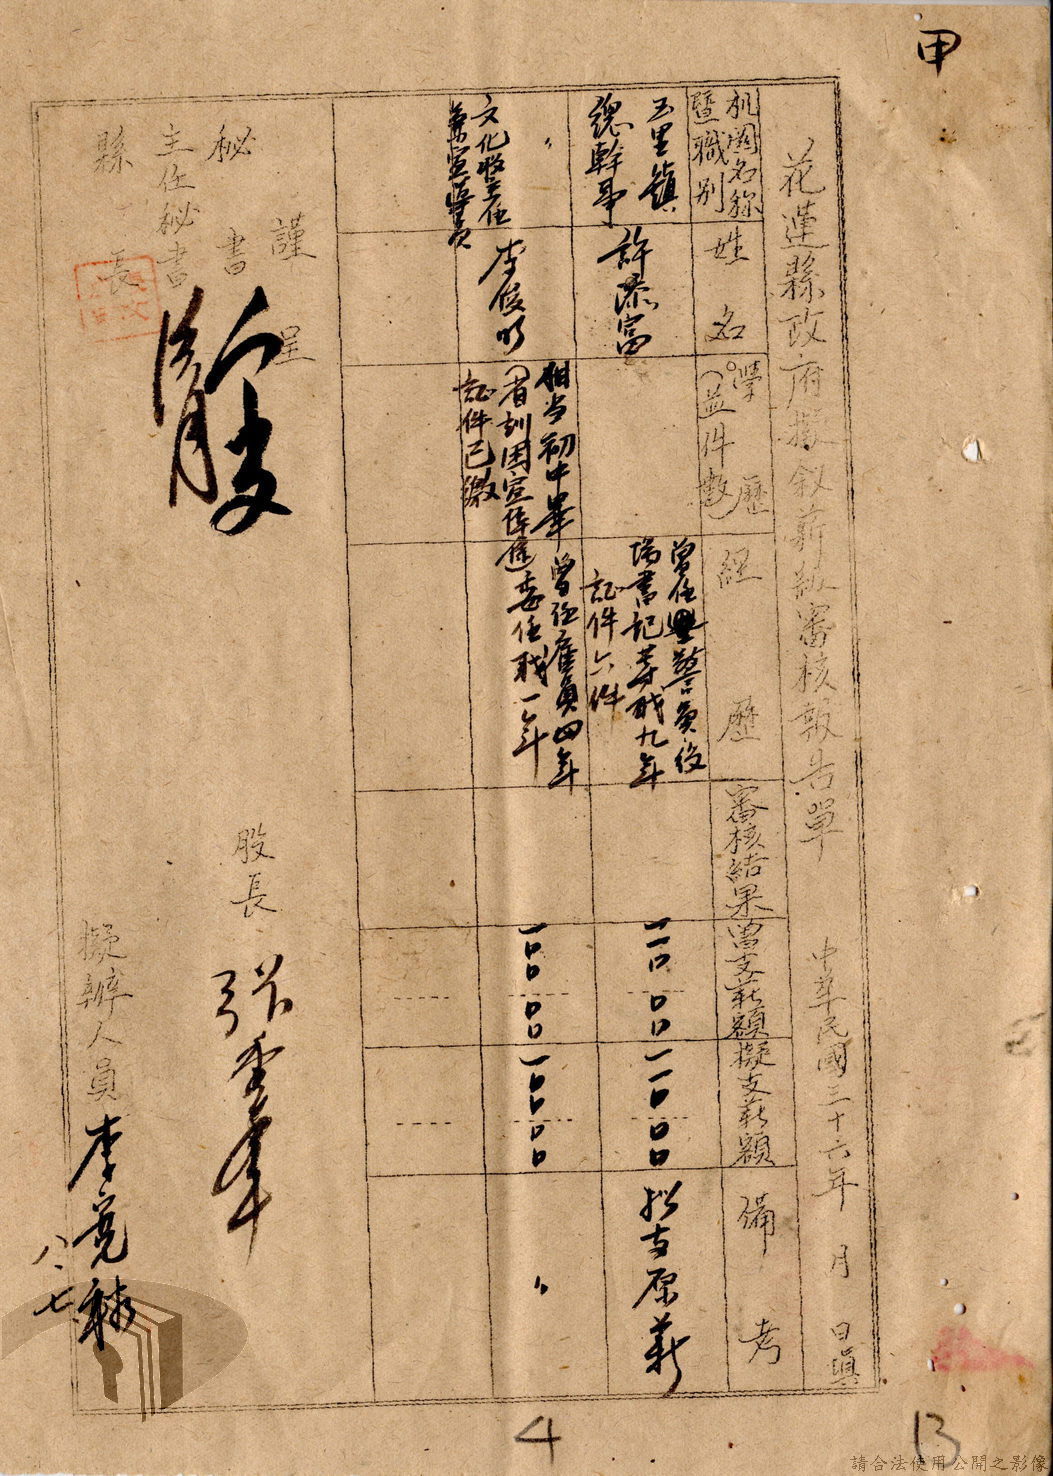 甲
花蓮縣政府擬敘薪級審核報告單
中華民國三十六年 月 日填
机関名称
暨職別
姓名
學歷
(益件數)
經歷
審核結果
曾支薪額
擬支薪額
備考
玉里鎮
總幹事
許添富
曾任
警員後
書記等職九年
証件六件
一一〇 〇〇
一一〇 〇〇
拟支原薪
〃
文化股主任
兼宣傳員
李俊明
相当初中畢
(省訓团宣傳
証件已繳
曾任雇員四年
委任職一年
一〇〇 〇〇
一〇〇 〇〇
〃
謹呈
秘書
主任秘書
縣長
股長
張
擬辦人員
李
八、七
4
13
請合法使用公開之影像